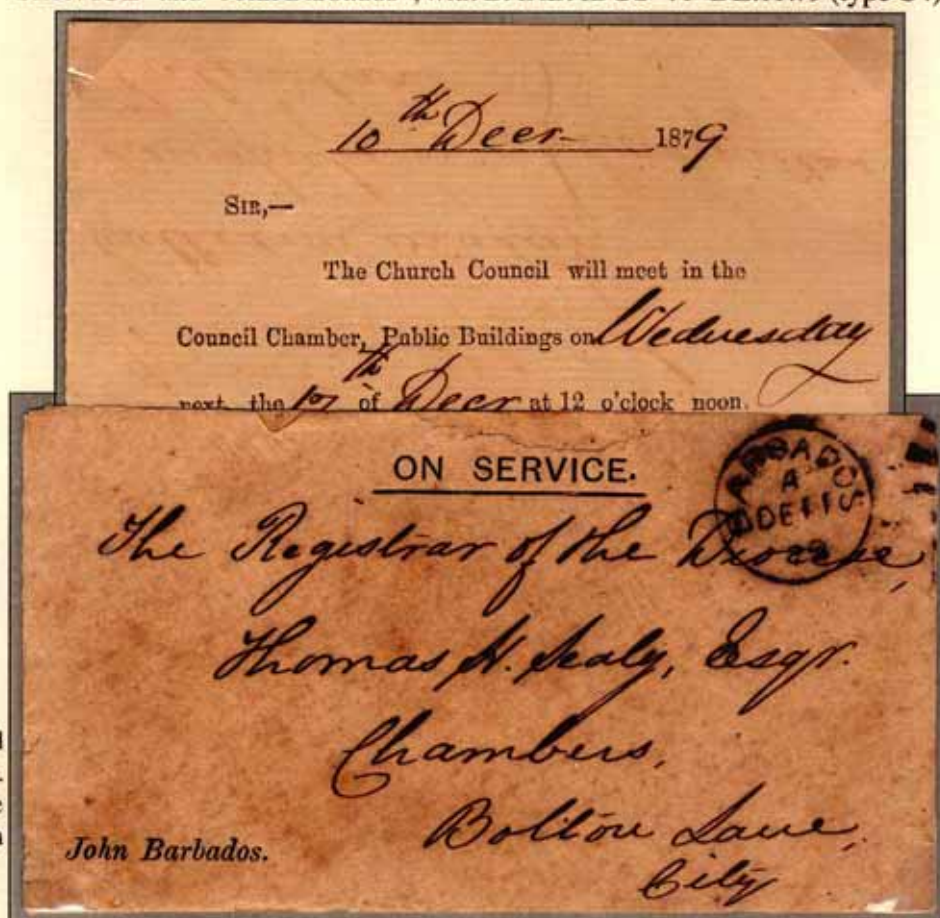 10th Decr 1879
SIR,—
The Church Council will meet in the
Council Chamber, Public Buildings on Wednesday
next, the 17th of Decr at 12 o'clock noon.
ON SERVICE.
BARBADOS
A
DE 11
The Registrar of the Diocese,
Thomas H. Sealy, Esqr.
Chambers,
Bolton Lane,
City
John Barbados.